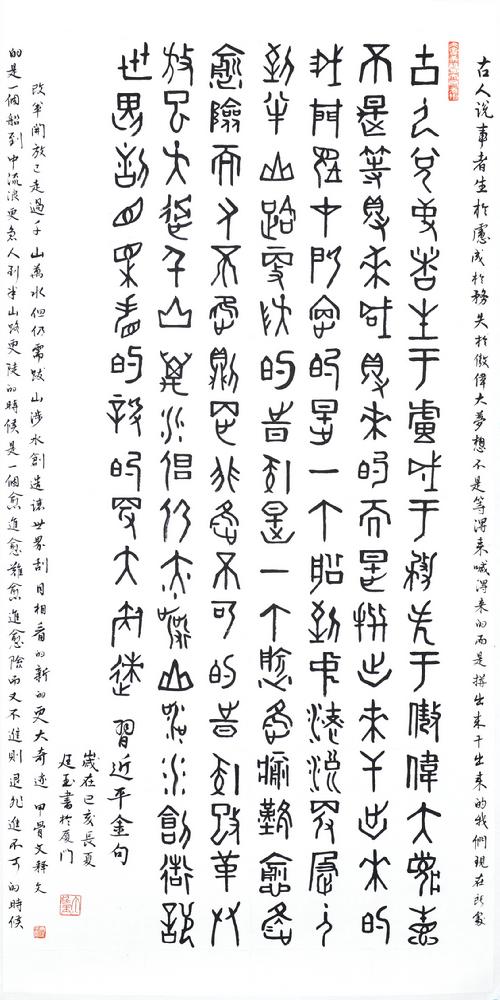 古人说事者生於慮成於務失於傲偉大夢想不是等得来喊得来的而是拼出来干出来的我們現在所處
古人说事者生于慮成于務失于傲偉大夢想
不是等得来喊得来的而是拼出来干出来的
我們現在所處的是一个船到中流浪更急人
到半山路更陡的時候是一个愈進愈難愈進
愈險而又不進則退非進不可的時候改革開
放已走過千山萬水但仍需跋山涉水創造讓
世界刮目相看的新的更大奇迹 習近平金句
歲在己亥長夏
廷玉書於厦門
的是一個船到中流浪更急人到半山路更陡的時候是一個愈進愈難愈進愈險而又不進則退非進不可的時候
改革開放已走過千山萬水但仍需跋山涉水創造讓世界刮目相看的新的更大奇迹 甲骨文释文